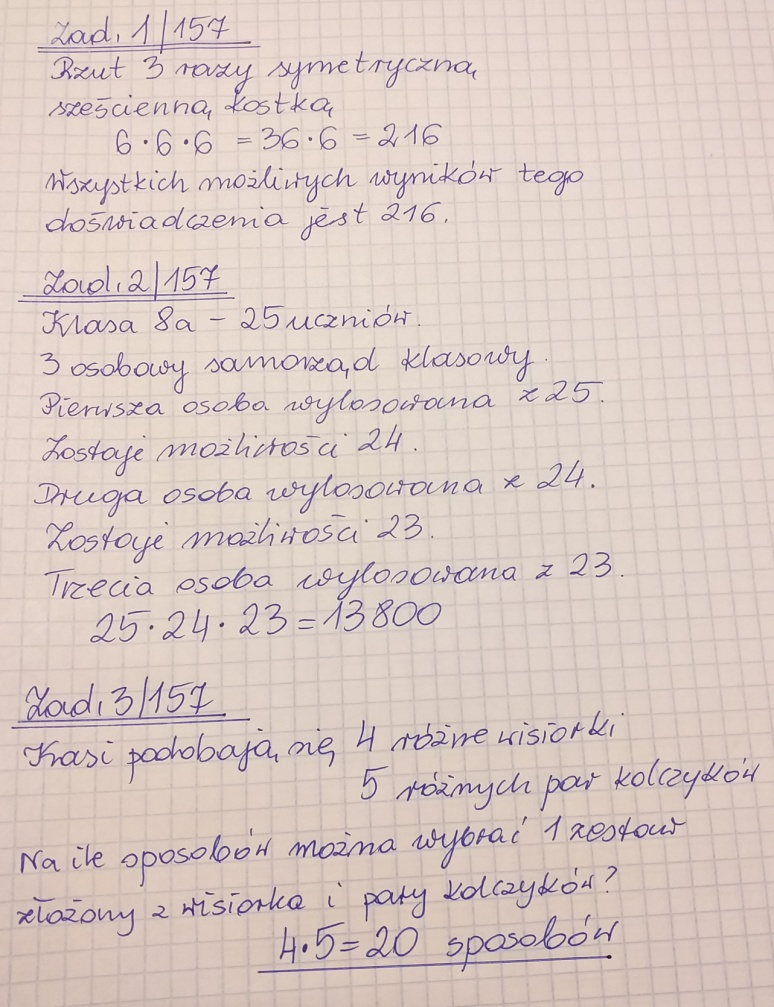 Zad. 1/157
Rzut 3 razy symetryczną
sześcienną kostką
6·6·6 = 36·6 = 216
Wszystkich możliwych wyników tego
doświadczenia jest 216.
Zad. 2/157
Klasa 8a - 25 uczniów.
3 osobowy samorząd klasowy.
Pierwsza osoba wylosowana z 25.
Zostaje możliwości 24.
Druga osoba wylosowana z 24.
Zostaje możliwości 23.
Trzecia osoba wylosowana z 23.
25·24·23 = 13800
Zad. 3/157
Kasi podobają się 4 różne wisiorki
5 różnych par kolczyków
Na ile sposobów można wybrać 1 zestaw
złożony z wisiorka i pary kolczyków?
4·5 = 20 sposobów